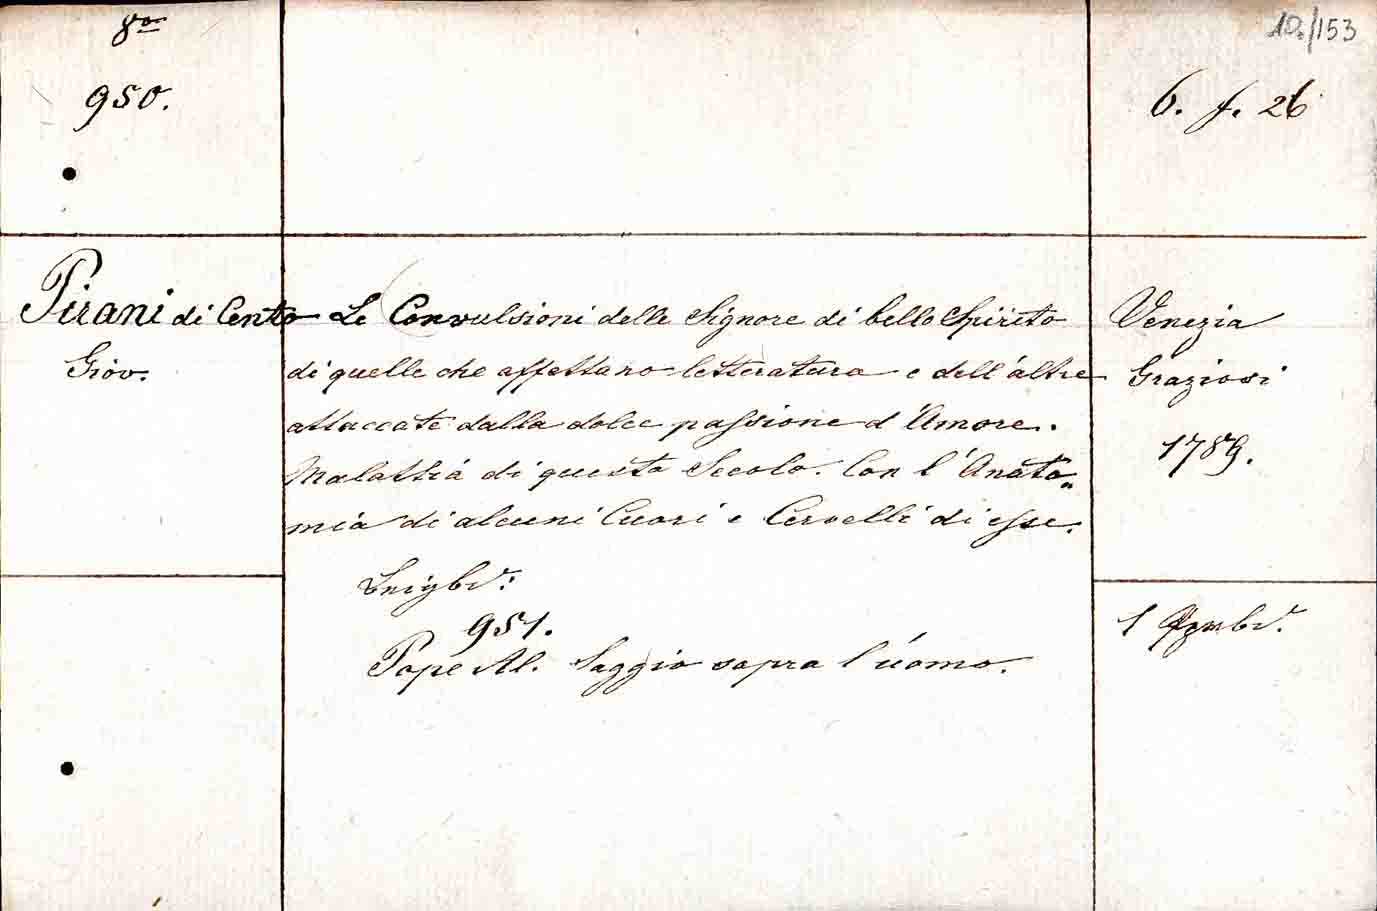 8º
950.
10./153
6. f. 26
Pirani di Cento
Giov.
Le Convulsioni delle Signore di bello Spirito
di quelle che affettano letteratura e dell'altre
attaccate dalla dolce passione d'Amore.
Malattia di questo Secolo. Con l'Anato„
mia di alcuni Cuori e Cervelli di esse.
951.
Pope Al. Saggio sopra l'uomo.
Venezia
Graziosi
1789.
1